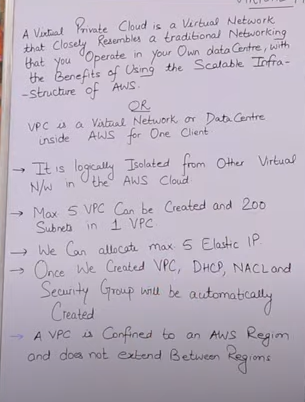 A Virtual Private Cloud is a Virtual Network
that Closely Resembles a traditional Networking
that you Operate in your Own data Centre, with
the Benefits of Using the Scalable Infra-
-Structure of AWS.
OR
VPC is a Virtual Network or Data Centre
inside AWS for One Client
→ It is logically Isolated from Other Virtual
N/w in the AWS Cloud.
→ Max 5 VPC Can be Created and 200
Subnets in 1 VPC
→ We Can allocate max 5 Elastic IP.
→ Once We Created VPC, DHCP, NACL and
Security Group will be automatically
Created
→ A VPC is Confined to an AWS Regim
and does not extend Between Regions